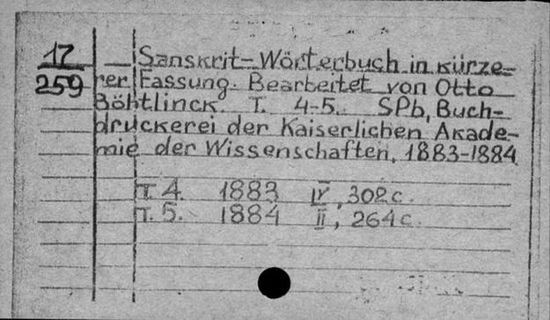 17 Sanskrit-Wörterbuch in kürze-
259 rer Fassung. Bearbeitet von Otto
Böhtlinck. T. 4-5. SPb, Buch-
druckerei der Kaiserlichen Akade-
mie der Wissenschaften, 1883-1884
T. 4. 1883 IV, 302 с.
T. 5. 1884 II, 264 с.